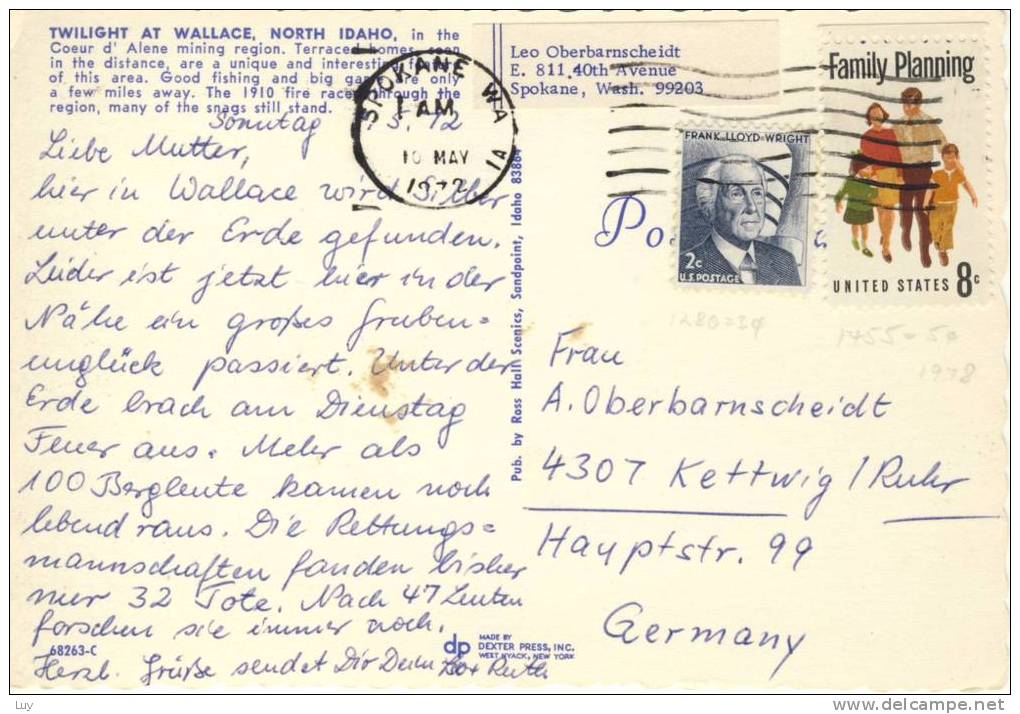 TWILIGHT AT WALLACE, NORTH IDAHO, in the
Coeur d' Alene mining region. Terraced homes, seen
in the distance, are a unique and interesting feature
of this area. Good fishing and big game are only
a few miles away. The 1910 fire raced through the
region, many of the snags still stand.
Sonntag 5. 72
Liebe Mutter,
hier in Wallace wird Silber
unter der Erde gefunden.
Leider ist jetzt hier in der
Nähe ein großes Gruben=
unglück passiert. Unter der
Erde brach am Dienstag
Feuer aus. Mehr als
100 Bergleute kamen noch
lebend raus. Die Rettungs=
mannschaften fanden bisher
nur 32 Tote. Nach 47 Leuten
forschen sie immer noch.
68263-C
Herzl. Grüße sendet Dir Dein Leo + Ruth
dp MADE BY
DEXTER PRESS, INC.
WEST NYACK, NEW YORK
Pub. by Ross Hall Scenics, Sandpoint, Idaho 83864
Leo Oberbarnscheidt
E. 811 40th Avenue
Spokane, Wash. 99203
SPOKANE WA
1 AM
10 MAY
1972
1A
FRANK·LLOYD·WRIGHT
2c
U.S. POSTAGE
Family Planning
UNITED STATES 8c
1280=3¢
1455=50
1978
Frau
A. Oberbarnscheidt
4307 Kettwig/Ruhr
Hauptstr. 99
Germany
Luy
www.delcampe.net